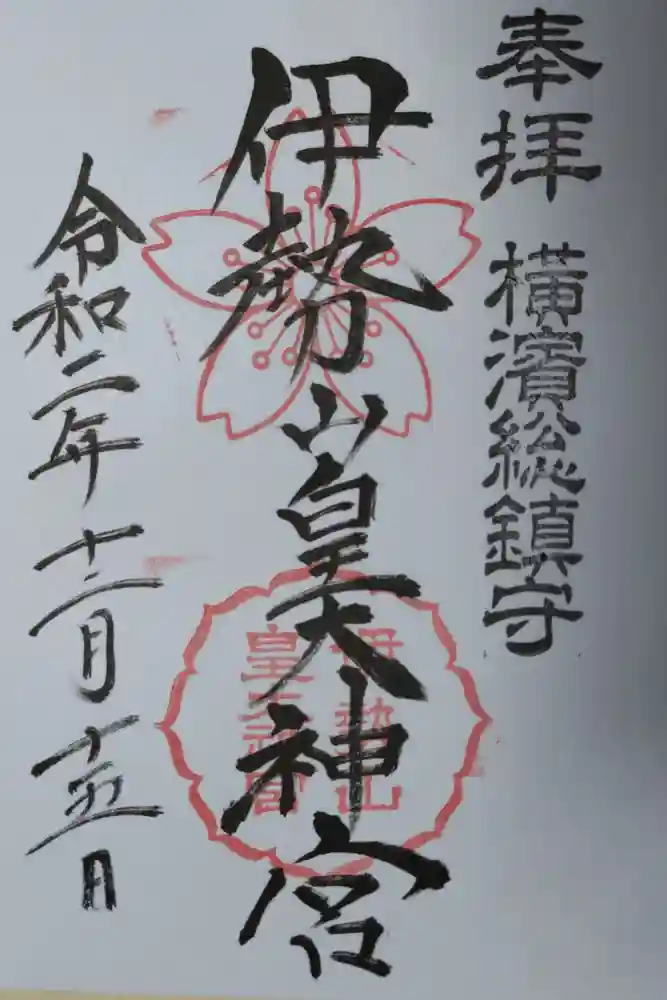 奉拝
横濱総鎮守
伊勢山皇大神宮
伊勢山
皇大神宮
令和二年十二月十五日